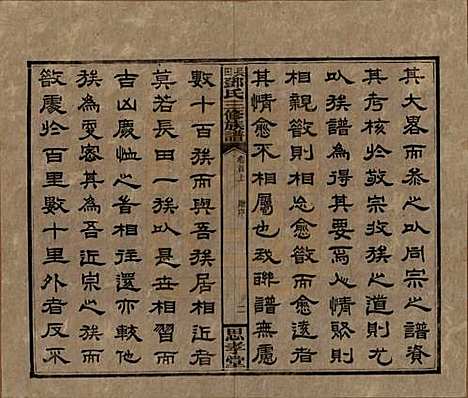 其大畧而叅之以同宗之譜資
其考核於敬宗收族之道則尤
以族譜為得其要人心情聚則
相親散則相忘愈散而愈遠者
其情愈不相屬也故聯譜無慮
長田
鄒氏三修族譜
卷首上
二
思孝堂
數十百族而與吾族居相近者
莫若長田一族以是世相習而
吉凶慶恤之者相往還亦較他
族為更密其為吾近宗之族
散處於百里數十里外者反不